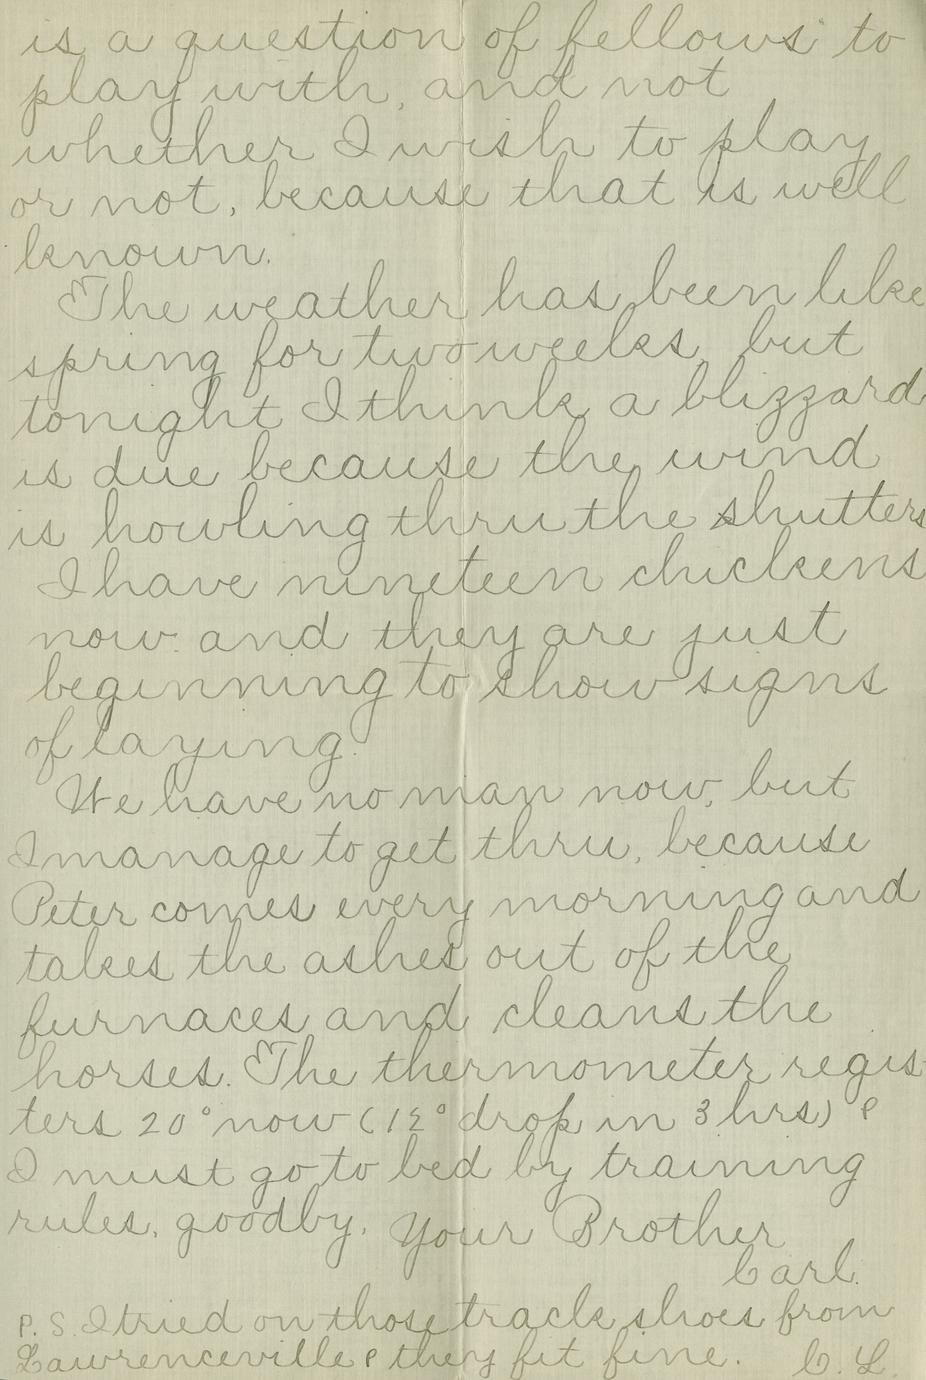 is a question of fellows to
play with, and not
whether I wish to play
or not, because that is well
known.
The weather has been like
spring for two weeks, but
tonight I think a blizzard
is due because the wind
is howling thru the shutters
I have nineteen chickens
now and they are just
beginning to show signs
of laying.
We have no man now, but
I manage to get thru, because
Peter comes every morning and
takes the ashes out of the
furnaces and cleans the
horses. The thermometer regis-
ters 20° now (12° drop in 3 hrs) &
I must go to bed by training
rules, goodby. Your Brother
Carl.
P.S. I tried on those track shoes from
Lawrenceville & they fit fine. C.L.